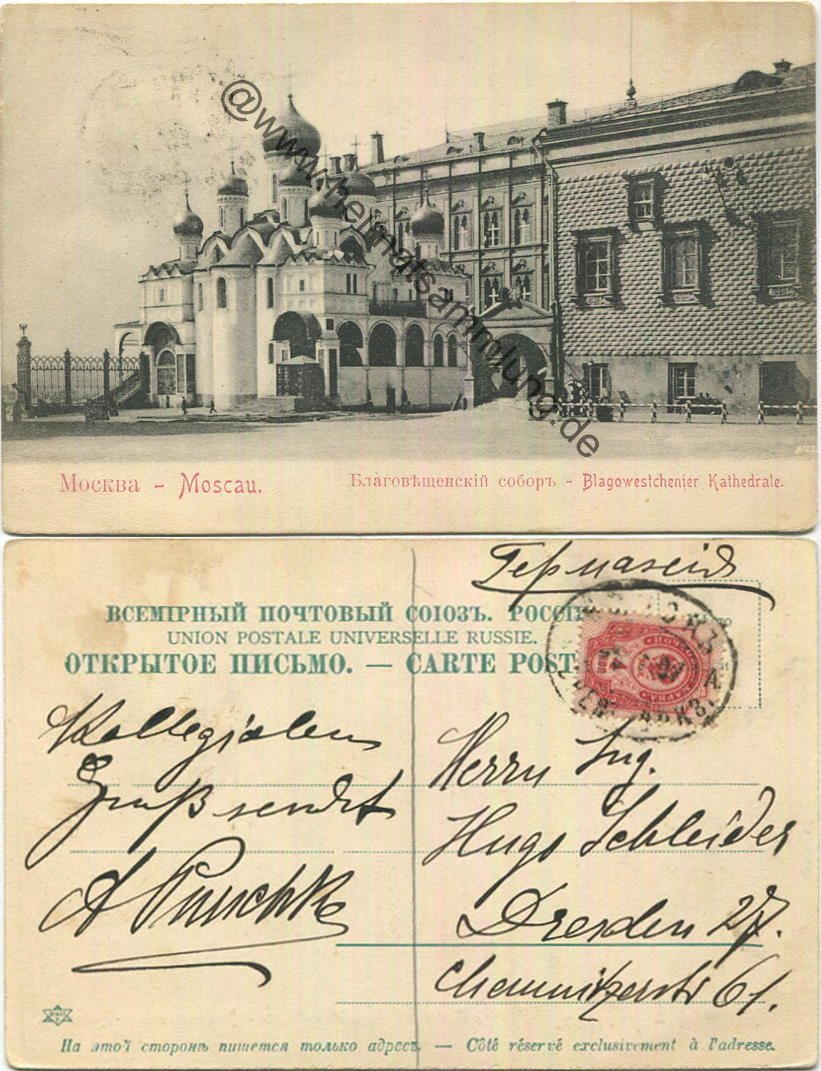 @www.heimatsammlung.de
Москва - Moscau.
Благовѣщенскій соборъ - Blagowestchenier Kathedrale.
Германія
ВСЕМІРНЫЙ ПОЧТОВЫЙ СОЮЗЪ. РОССІЯ
UNION POSTALE UNIVERSELLE RUSSIE.
ОТКРЫТОЕ ПИСЬМО. — CARTE POST
Kollegialen
Gruß sendet
Herrn Ing.
Hugo Schleider
Dresden 27.
Chemnitzerstr 61.
На этой сторонѣ пишется только адресъ. — Côté réservé exclusivement à l'adresse.